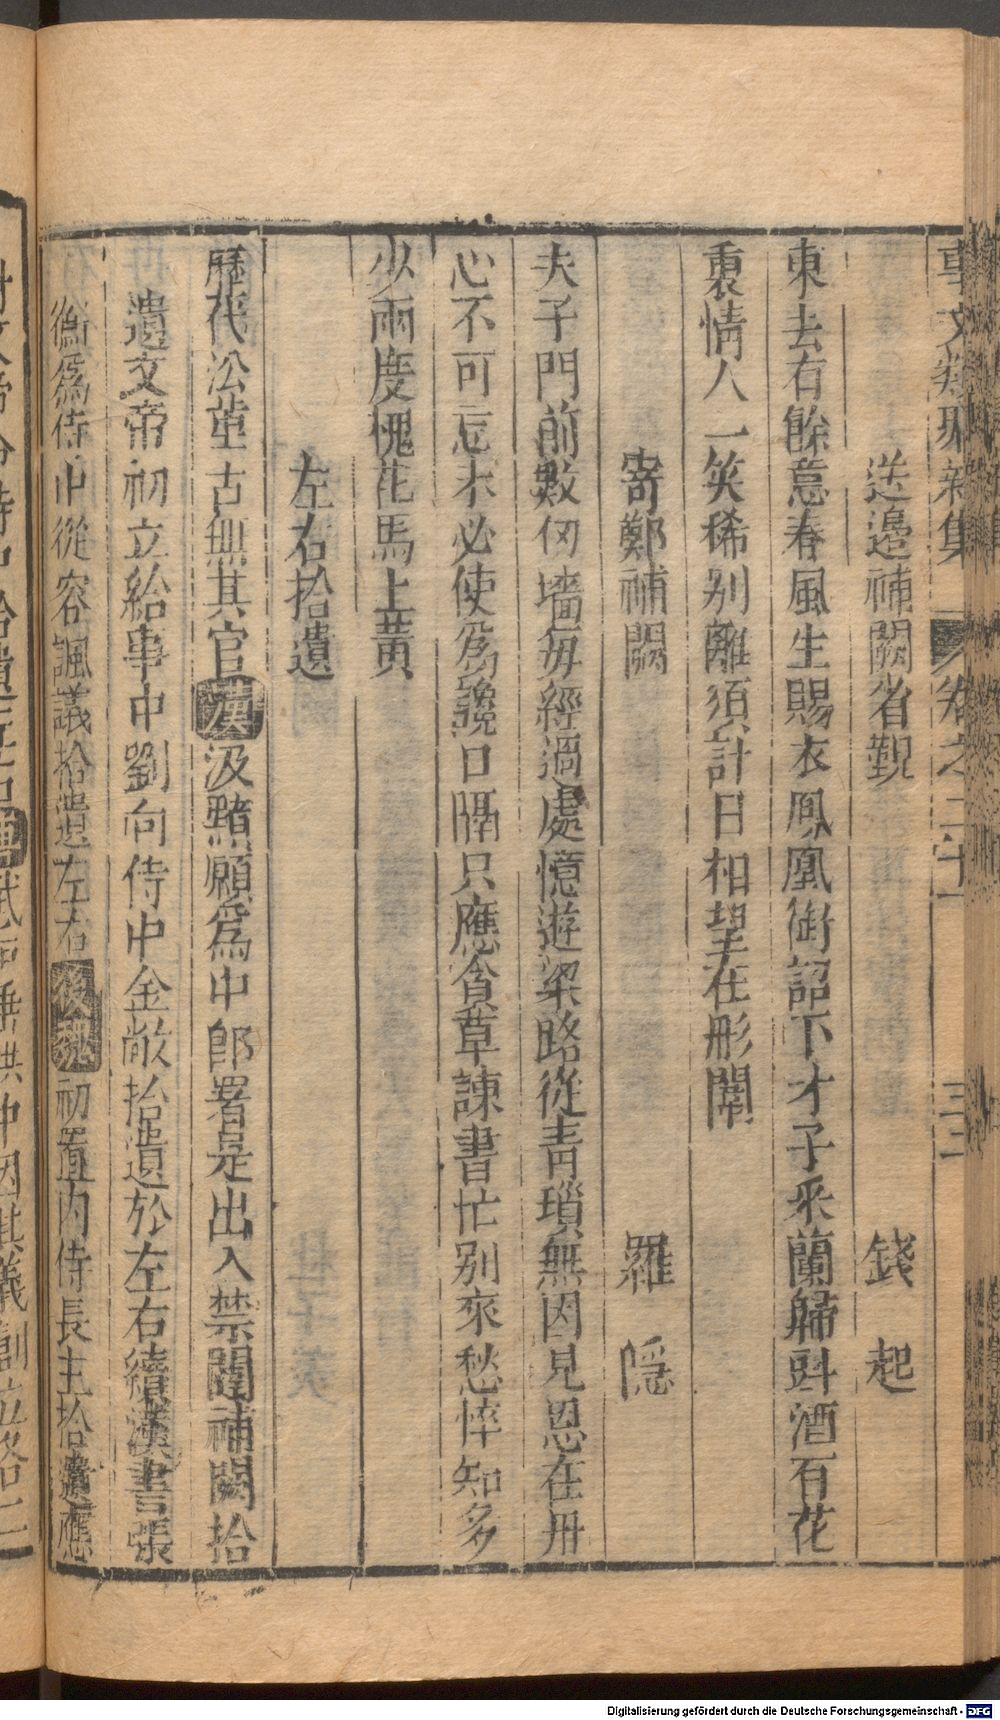 事文類聚新集 卷之二十一 三二
送邊補闕省覲 錢起
東去有餘意春風生賜衣鳳凰銜詔下才子采蘭歸斟酒百花
裏情人一笑稀别離須計日相望在彤闈
寄鄭補闕 羅隱
夫子門前數仞墻每經過處憶遊梁路從青瑣無因見恩在丹
心不可忘未必使爲讒口隔只應貪草諫書忙别來愁悴知多
少兩度槐花馬上黄
左右拾遺
歷代沿革古無其官漢汲黯願爲中郎署是出入禁闥補闕拾
遺文帝初立給事中劉向侍中金敞拾遺於左右續漢書張
衡爲侍中從容諷議拾遺左右後魏初置内侍長主拾遺應
Digitalisierung gefördert durch die Deutsche Forschungsgemeinschaft - DFG